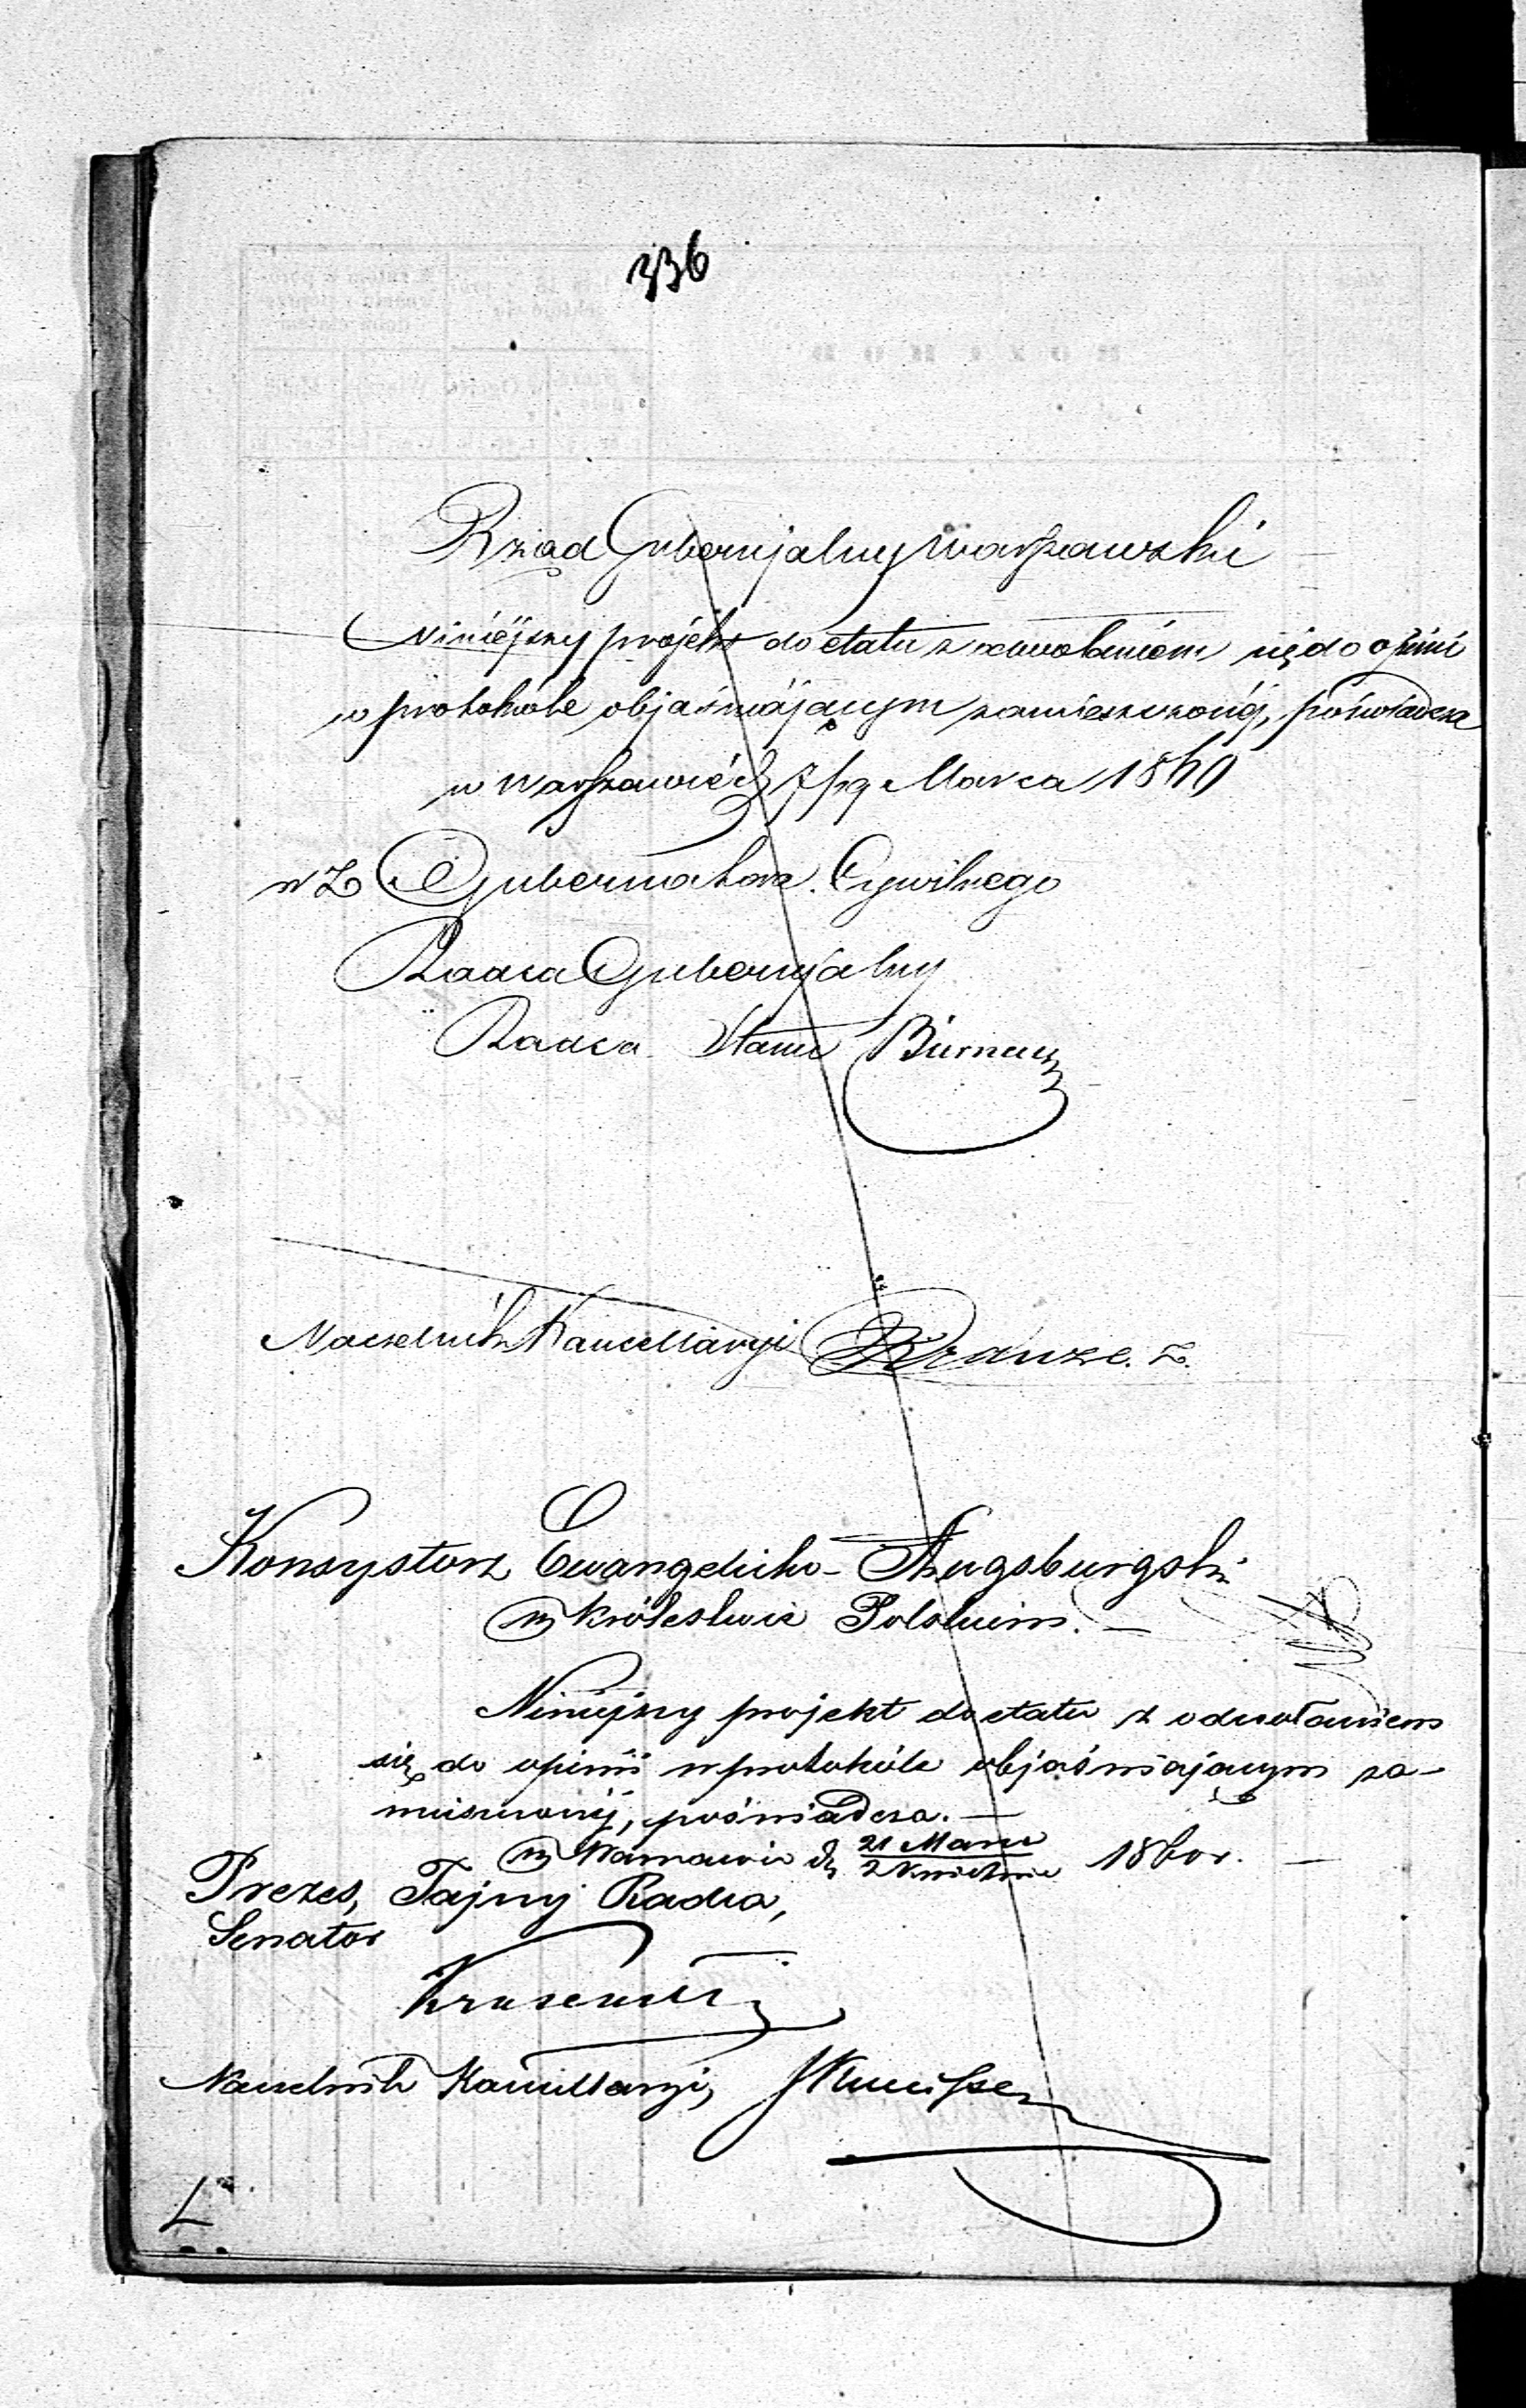 336
Rząd Gubernijalny Warszawski
Niniejszy projekt do etatu z odwołaniem się do opinii
w protokóle objaśniającym zamieszczonéj, poświadcza
w Warszawie d. 7/19 Marca 1860
w Z Gubernatora Cywilnego
Radca Gubernijalny
Radca Stanu
Naczelnik Kancellaryi Krauze. Z.
Konsystorz Ewangelicko-Augsburgski
w Królestwie Polskiem.
Niniejszy projekt do etatu z odwołaniem
się do opinii w protokóle objaśniającym za-
mieszczonéj, poświadcza. —
w Warszawie d. 21 Marca / 2 Kwietnia 1860 r. —
Prezes, Tajny Radca,
Senator
Naczelnik Kancellaryi,